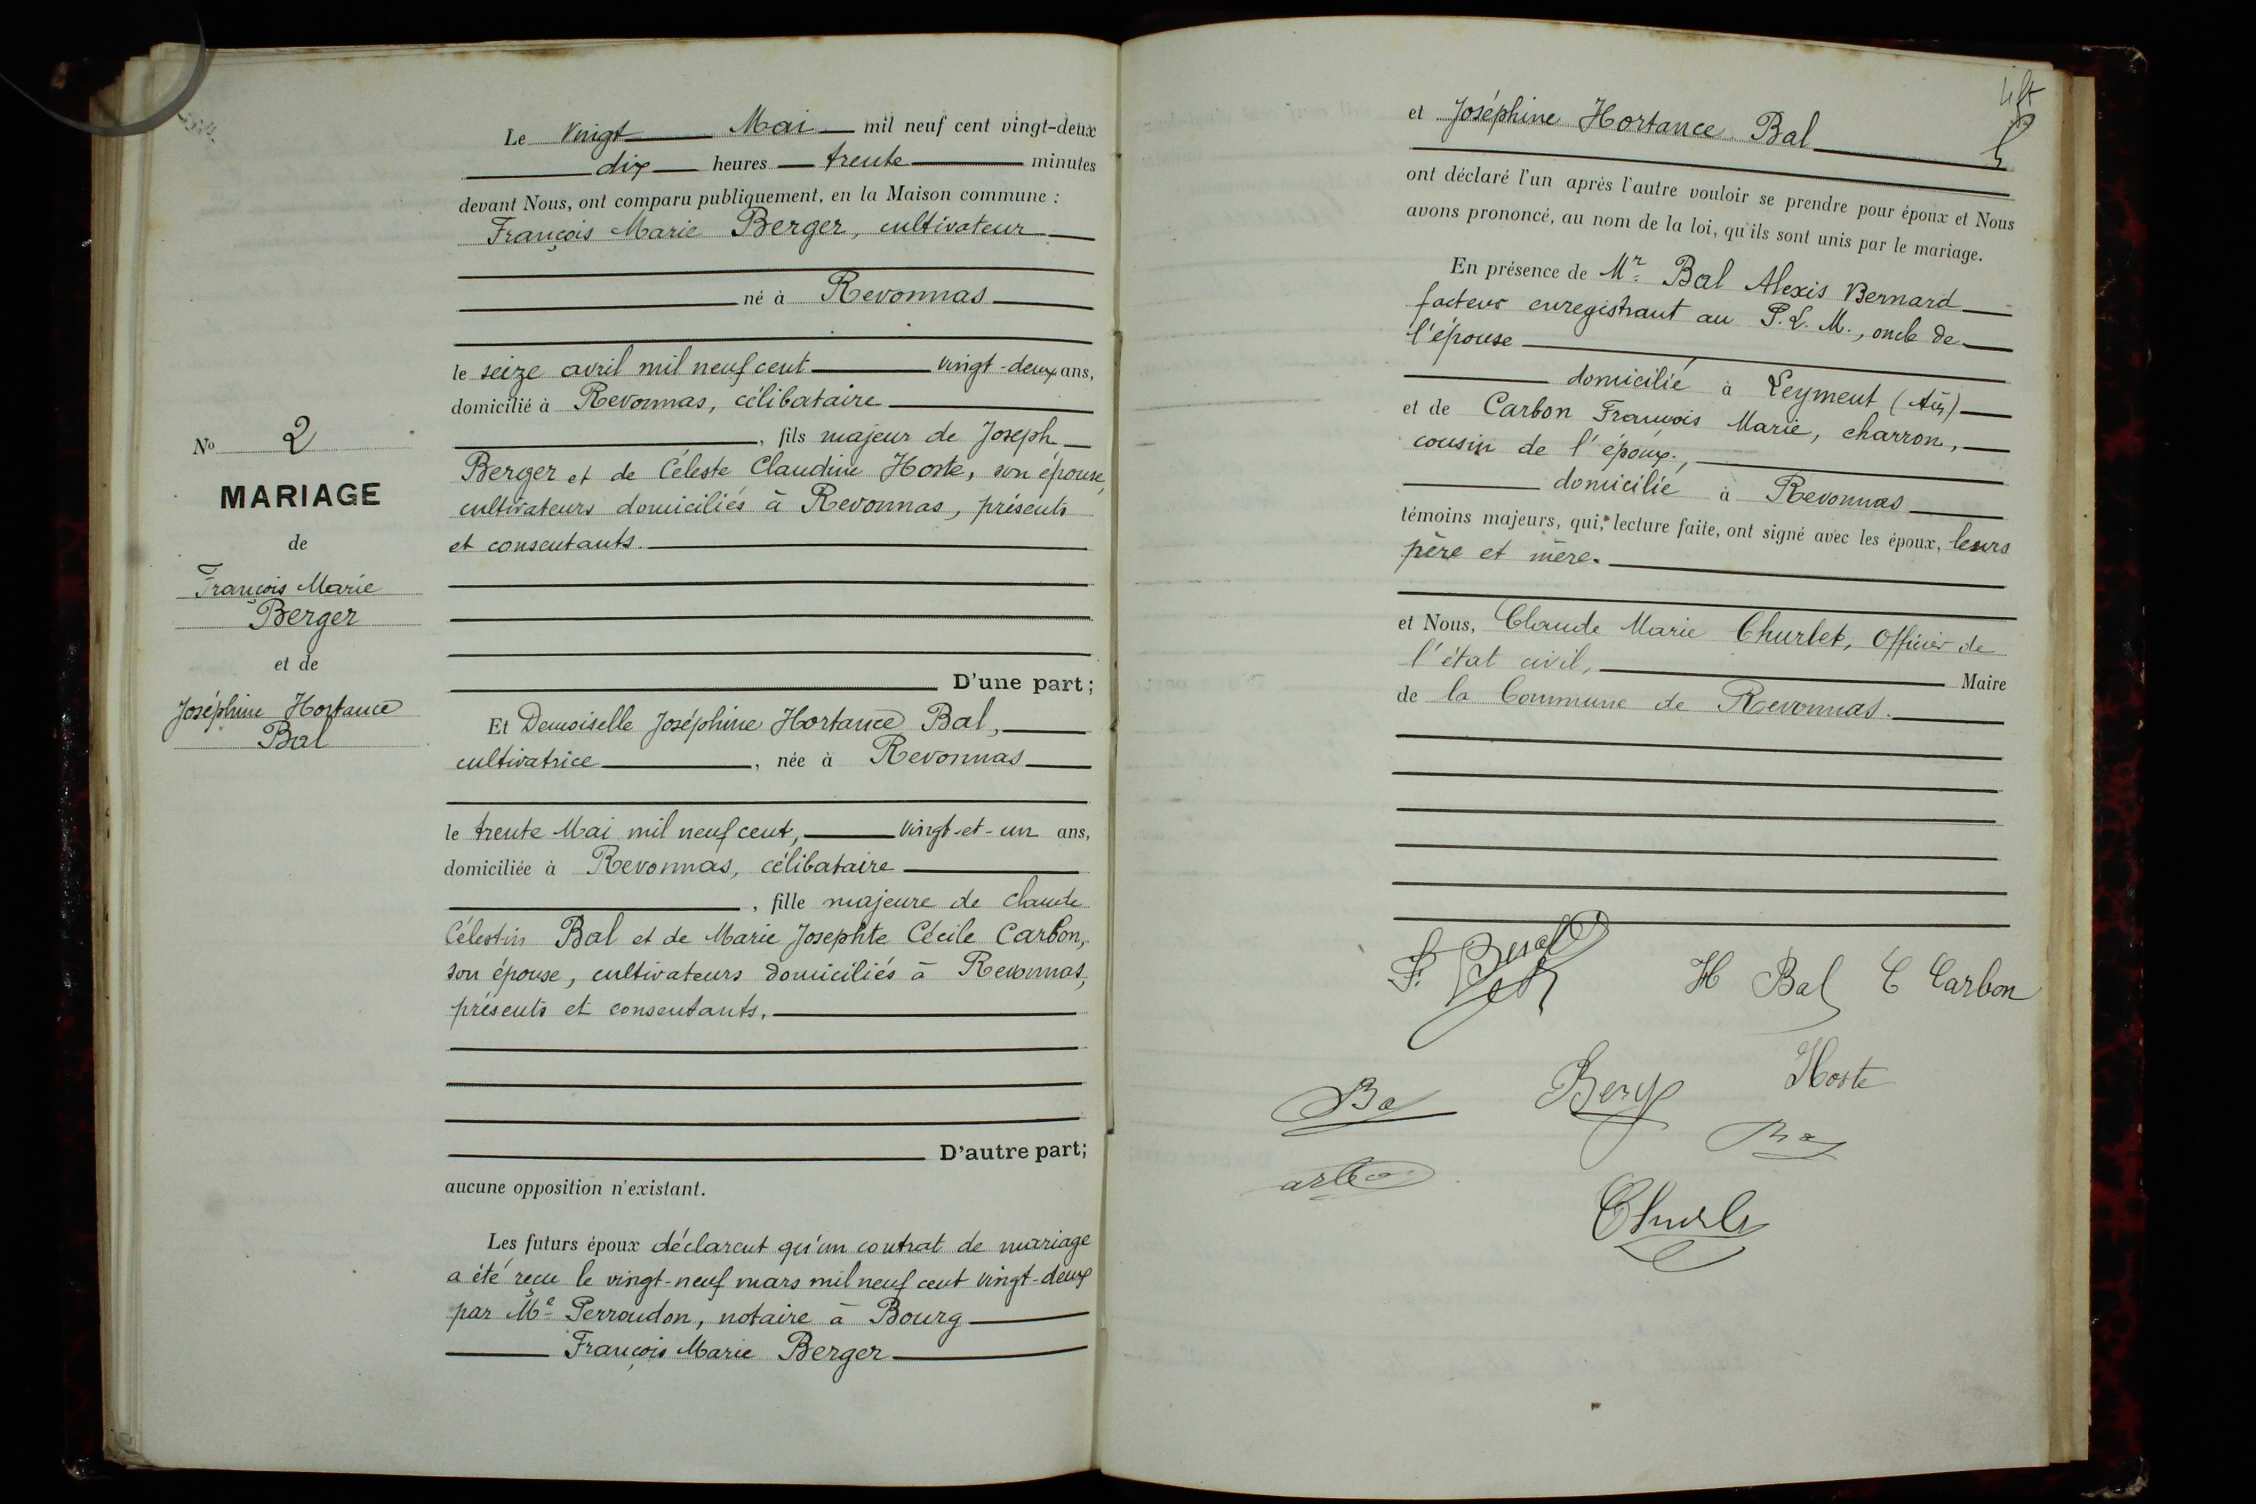 Le Vingt Mai mil neuf cent vingt-deux
dix heures trente minutes
devant Nous, ont comparu publiquement, en la Maison commune :
François Marie Berger, cultivateur
né à Revonnas
le seize avril mil neuf cent vingt-deux ans,
domicilié à Revonnas, célibataire
, fils majeur de Joseph
Berger et de Céleste Claudine Hoste, son épouse,
cultivateurs domiciliés à Revonnas, présents
et consentants.
D'une part;
Nº 2
MARIAGE
de
François Marie
Berger
et de
Joséphine Hortance
Bal
Et Demoiselle Joséphine Hortance Bal,
cultivatrice, née à Revonnas
le trente Mai mil neuf cent, vingt-et-un ans,
domiciliée à Revonnas, célibataire
, fille majeure de Claude
Célestin Bal et de Marie Josephte Cécile Carbon,
son épouse, cultivateurs domiciliés à Revonnas,
présents et consentants.
D'autre part;
aucune opposition n'existant.
Les futurs époux déclarent qu'un contrat de mariage
a été reçu le vingt-neuf mars mil neuf cent vingt-deux
par Me Perroudon, notaire à Bourg
François Marie Berger
et Joséphine Hortance Bal
ont déclaré l'un après l'autre vouloir se prendre pour époux et Nous
avons prononcé, au nom de la loi, qu'ils sont unis par le mariage.
En présence de Mr. Bal Alexis Bernard
facteur enregistrant au P.L.M., oncle de
l'épouse
domicilié à Leyment (Ain)
et de Carbon François Marie, charron,
cousin de l'époux.,
domicilié à Revonnas
témoins majeurs, qui, lecture faite, ont signé avec les époux, leurs
père et mère.
et Nous, Claude Marie Churlet, Officier de
l'état civil, Maire
de la Commune de Revonnas.
H Bal C Carbon
Hoste